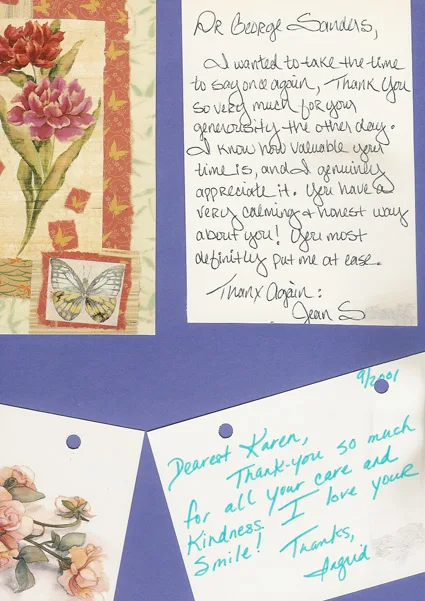 Dr George Sanders,
I wanted to take the time
to say once again, Thank You
so very much for your
generousity the other day.
I know how valuable your
time is, and I genuinly
appreciate it. You have a
very calming & honest way
about you! You most
definitly put me at ease.
Thanx Again:
Jean S
9/2001
Dearest Karen,
Thank-you so much
for all your care and
Kindness. I love your
Smile!
Thanks,
Ingrid